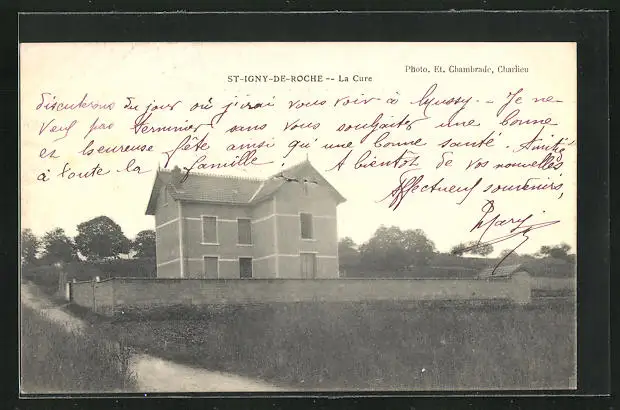 Photo. Et. Chambrade, Charlieu
ST-IGNY-DE-ROCHE -- La Cure
discuterons du jour où j'irai vous voir à - Je ne
veux pas terminer sans vous souhaiter une bonne
et heureuse fête ainsi qu'une bonne santé. Amitiés
à toute la famille A bientôt de vos nouvelles
Affectueux souvenirs,